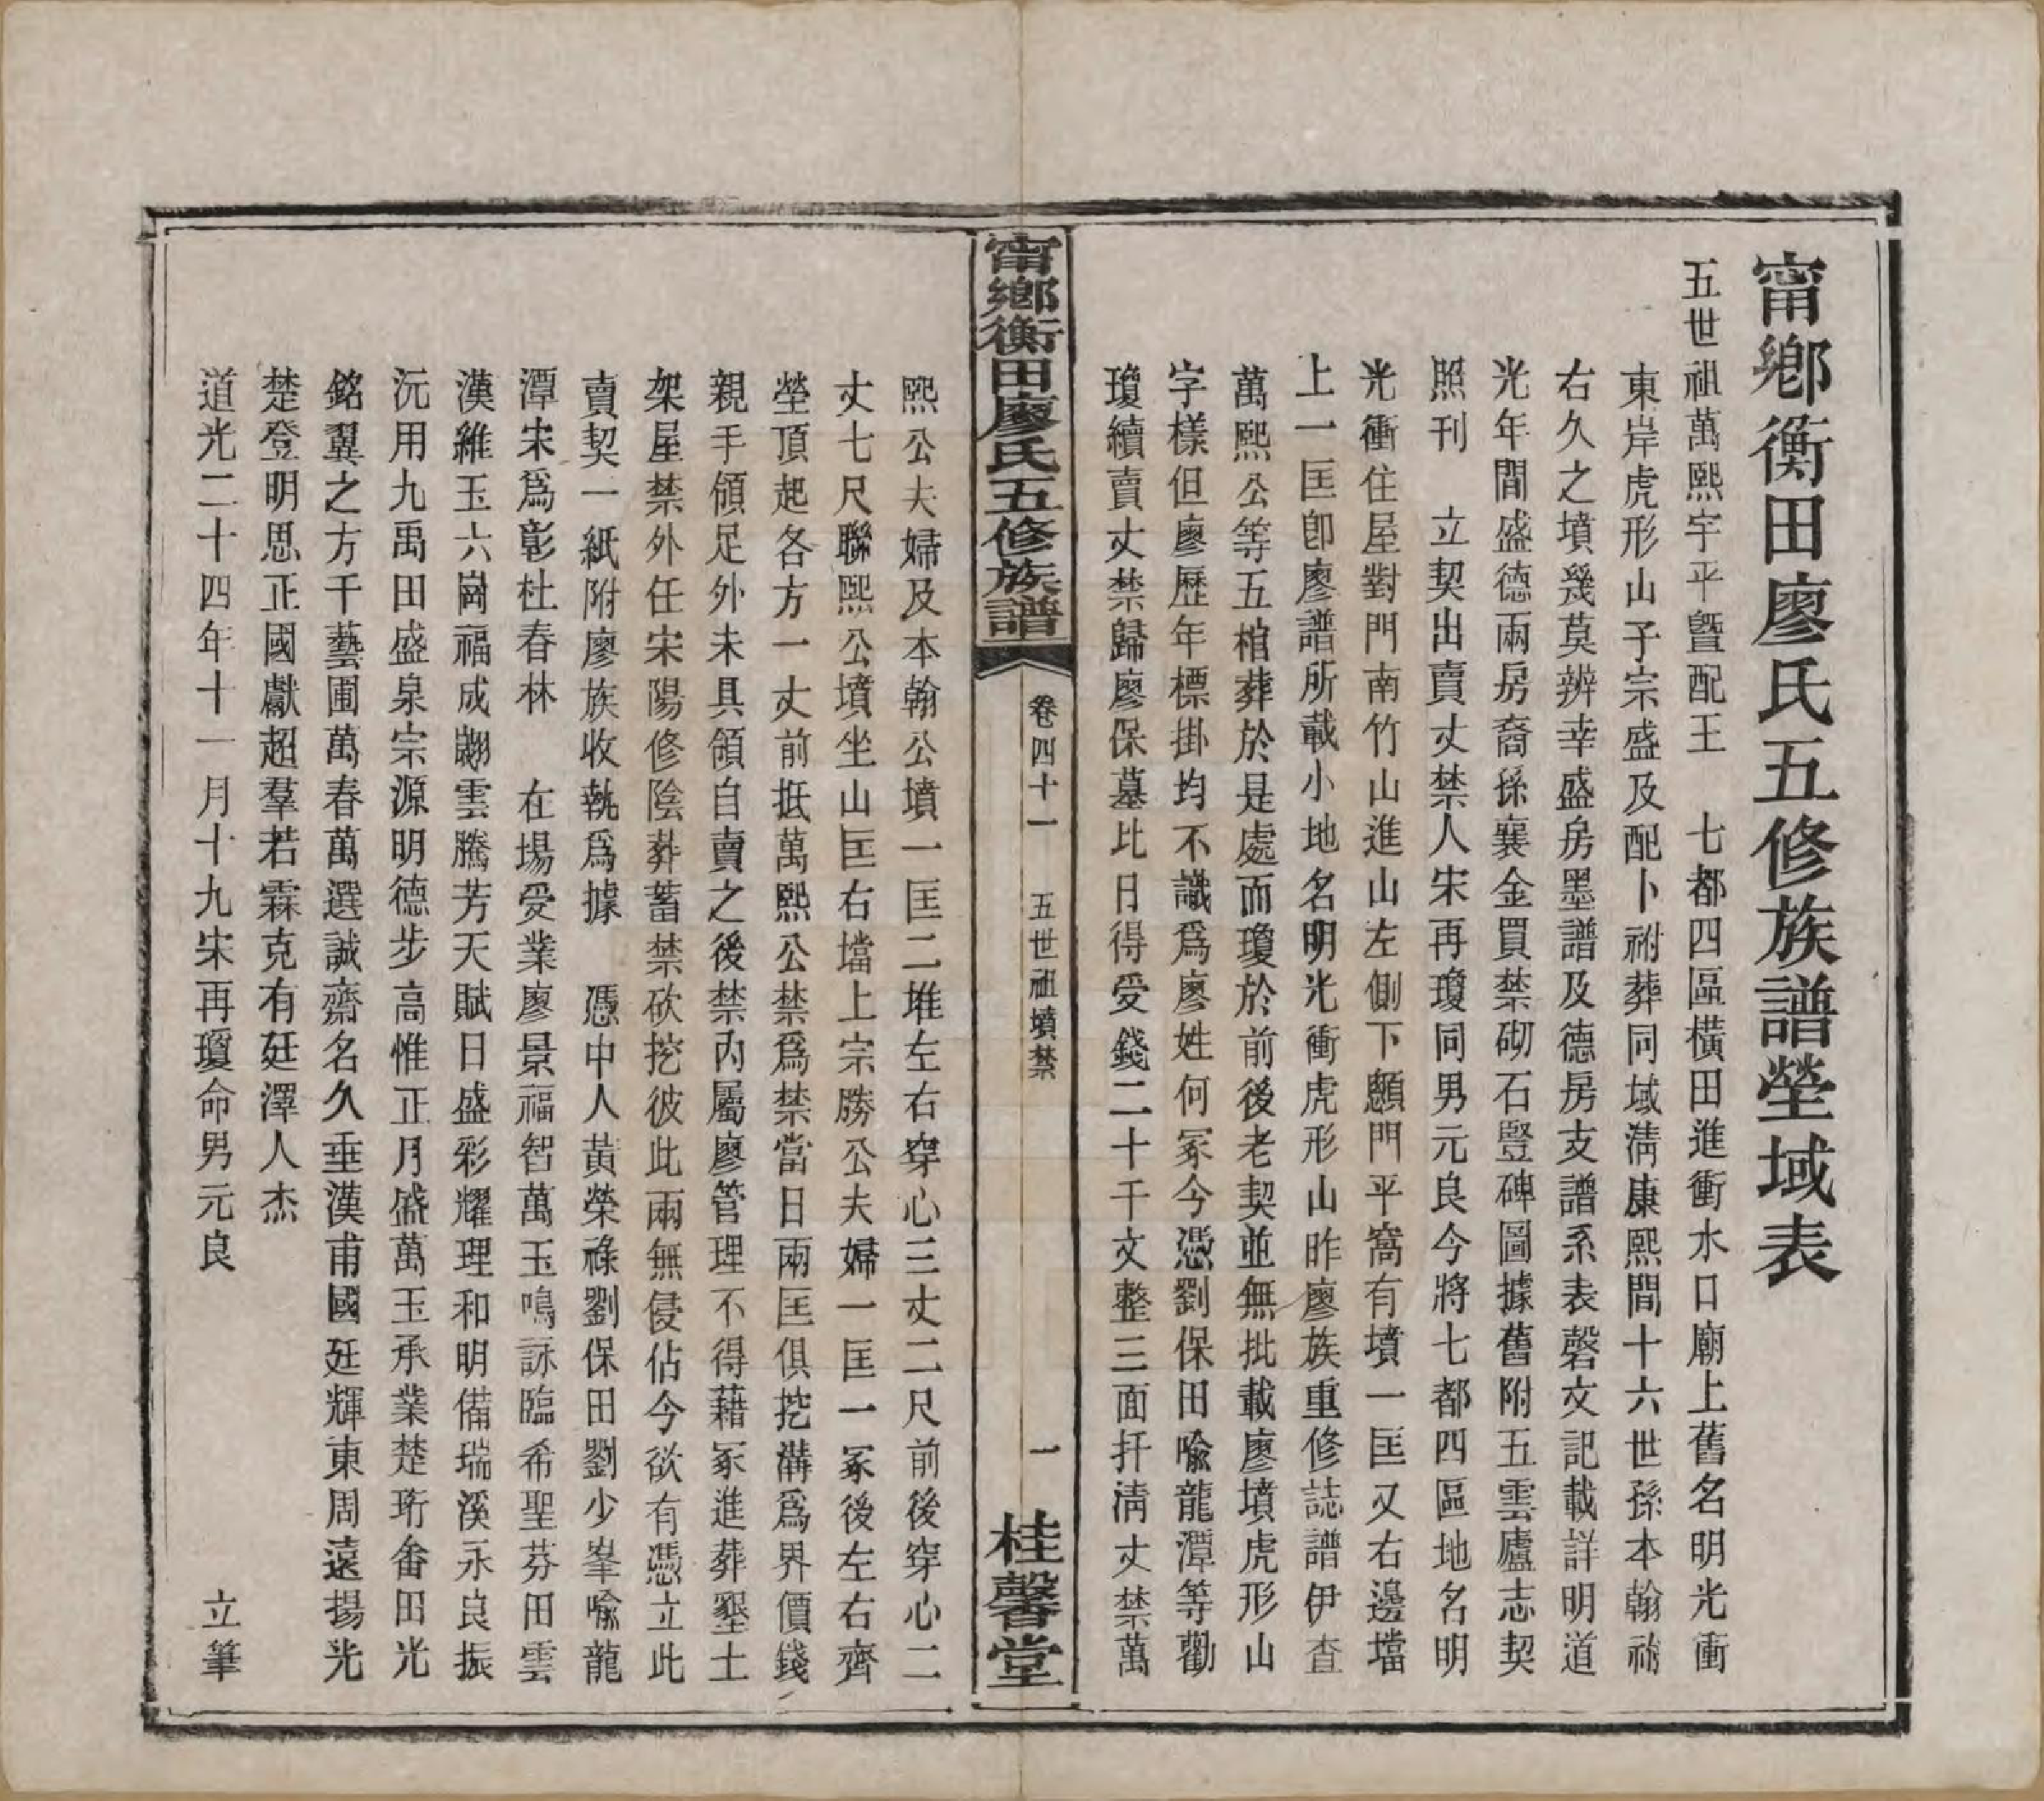 甯鄉衡田廖氏五修族譜塋域表
五世祖萬熙字平暨配王　七都四區橫田進衝水口廟上舊名明光衝
東岸虎形山子宗盛及配卜祔葬同域淸康熙間十六世孫本翰祔
右久之墳幾莫辨幸盛房墨譜及德房支譜系表磬文記載詳明道
光年間盛德兩房裔孫襄金買禁砌石豎碑圖據舊附五雲廬志契
照刊　立契出賣丈禁人宋再瓊同男元良今將七都四區地名明
光衝住屋對門南竹山進山左側下顋門平窩有墳一匡又右邊壋
上一匡卽廖譜所載小地名明光衝虎形山昨廖族重修誌譜伊查
萬熙公等五棺葬於是處而瓊於前後老契並無批載廖墳虎形山
字樣但廖歷年標掛均不識爲廖姓何冢今憑劉保田喩龍潭等勸
瓊續賣丈禁歸廖保墓比日得受錢二十千文整三面扦淸丈禁萬
甯鄉衡田廖氏五修族譜
卷四十一　五世祖墳禁
一
桂馨堂
熙公夫婦及本翰公墳一匡二堆左右穿心三丈二尺前後穿心二
丈七尺聯熙公墳坐山匡右壋上宗勝公夫婦一匡一冢後左右齊
塋頂起各方一丈前抵萬熙公禁爲禁當日兩匡俱挖溝爲界價錢
親手領足外未具領自賣之後禁內屬廖管理不得藉冢進葬墾土
架屋禁外任宋陽修陰葬蓄禁砍挖彼此兩無侵佔今欲有憑立此
賣契一紙附廖族收執爲據　憑中人黃榮祿劉保田劉少峯喩龍
潭宋爲彰杜春林　在場受業廖景福智萬玉鳴詠臨希聖芬田雲
漢維玉六崗福成翽雲騰芳天賦日盛彩耀理和明備瑞溪永良振
沅用九禹田盛泉宗源明德步高惟正月盛萬玉承業楚珩畬田光
銘翼之方千藝圃萬春萬選誠齋名久垂漢甫國廷輝東周遠揚光
楚登明思正國獻超羣若霖克有廷澤人杰
道光二十四年十一月十九宋再瓊命男元良　立筆